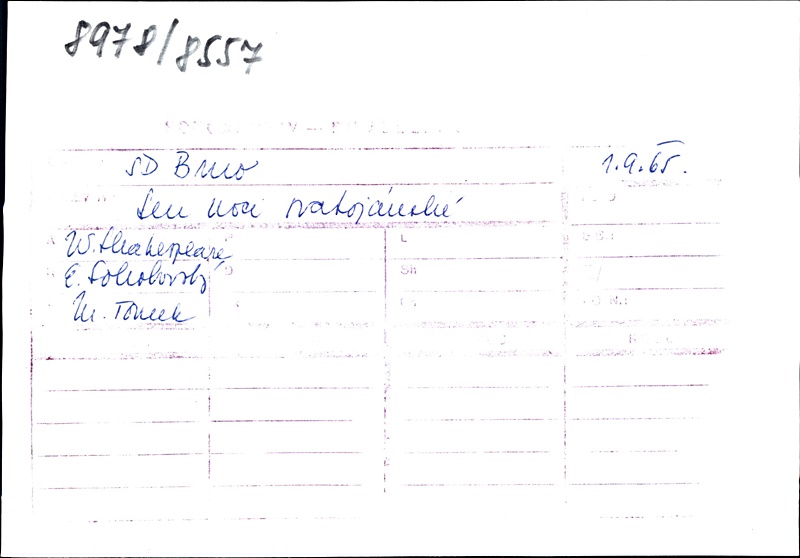 8978/8557
SD Brno 1.9.65.
Sen noci svatojánské
W. Shakespeare,
E. Sokolovský
M. Tomek
L
Sh